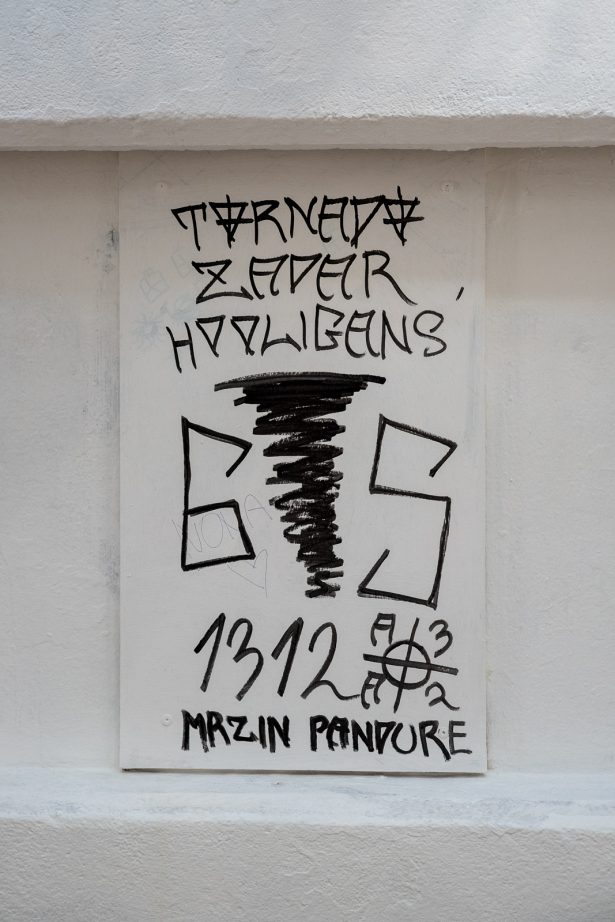 TORNADO
ZADAR
HOOLIGANS
6 5
NONA
1312 A 3
A 2
MRZIN PANDURE